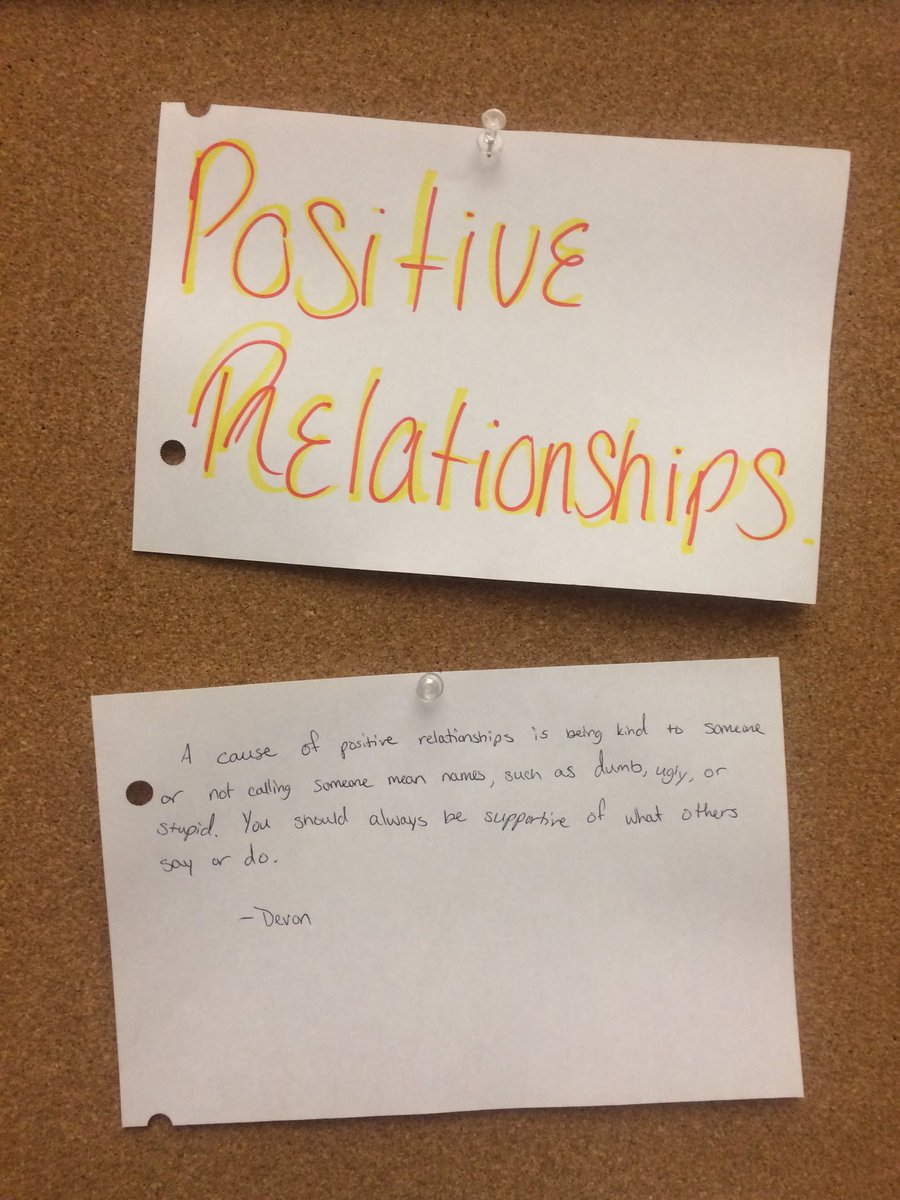 Positive
Relationships.
A cause of positive relationships is being kind to someone
or not calling someone mean names, such as dumb, ugly, or
stupid. You should always be supportive of what others
say or do.
- Devon